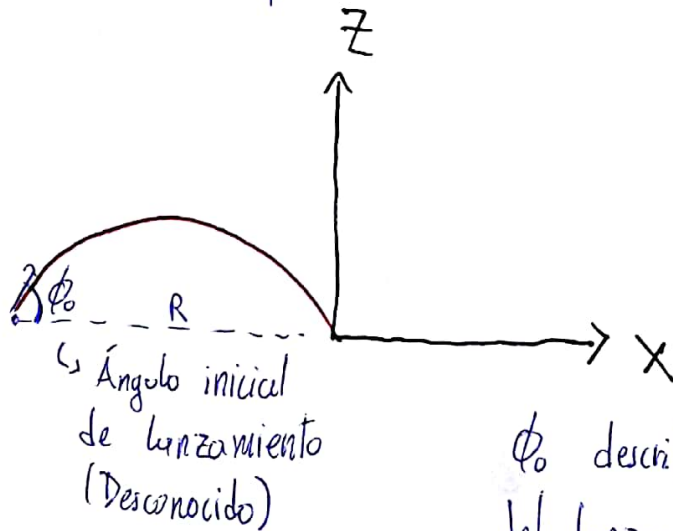 Z
ϕ₀
R
X
↳ Ángulo inicial
de lanzamiento
(Desconocido)
ϕ₀ descri